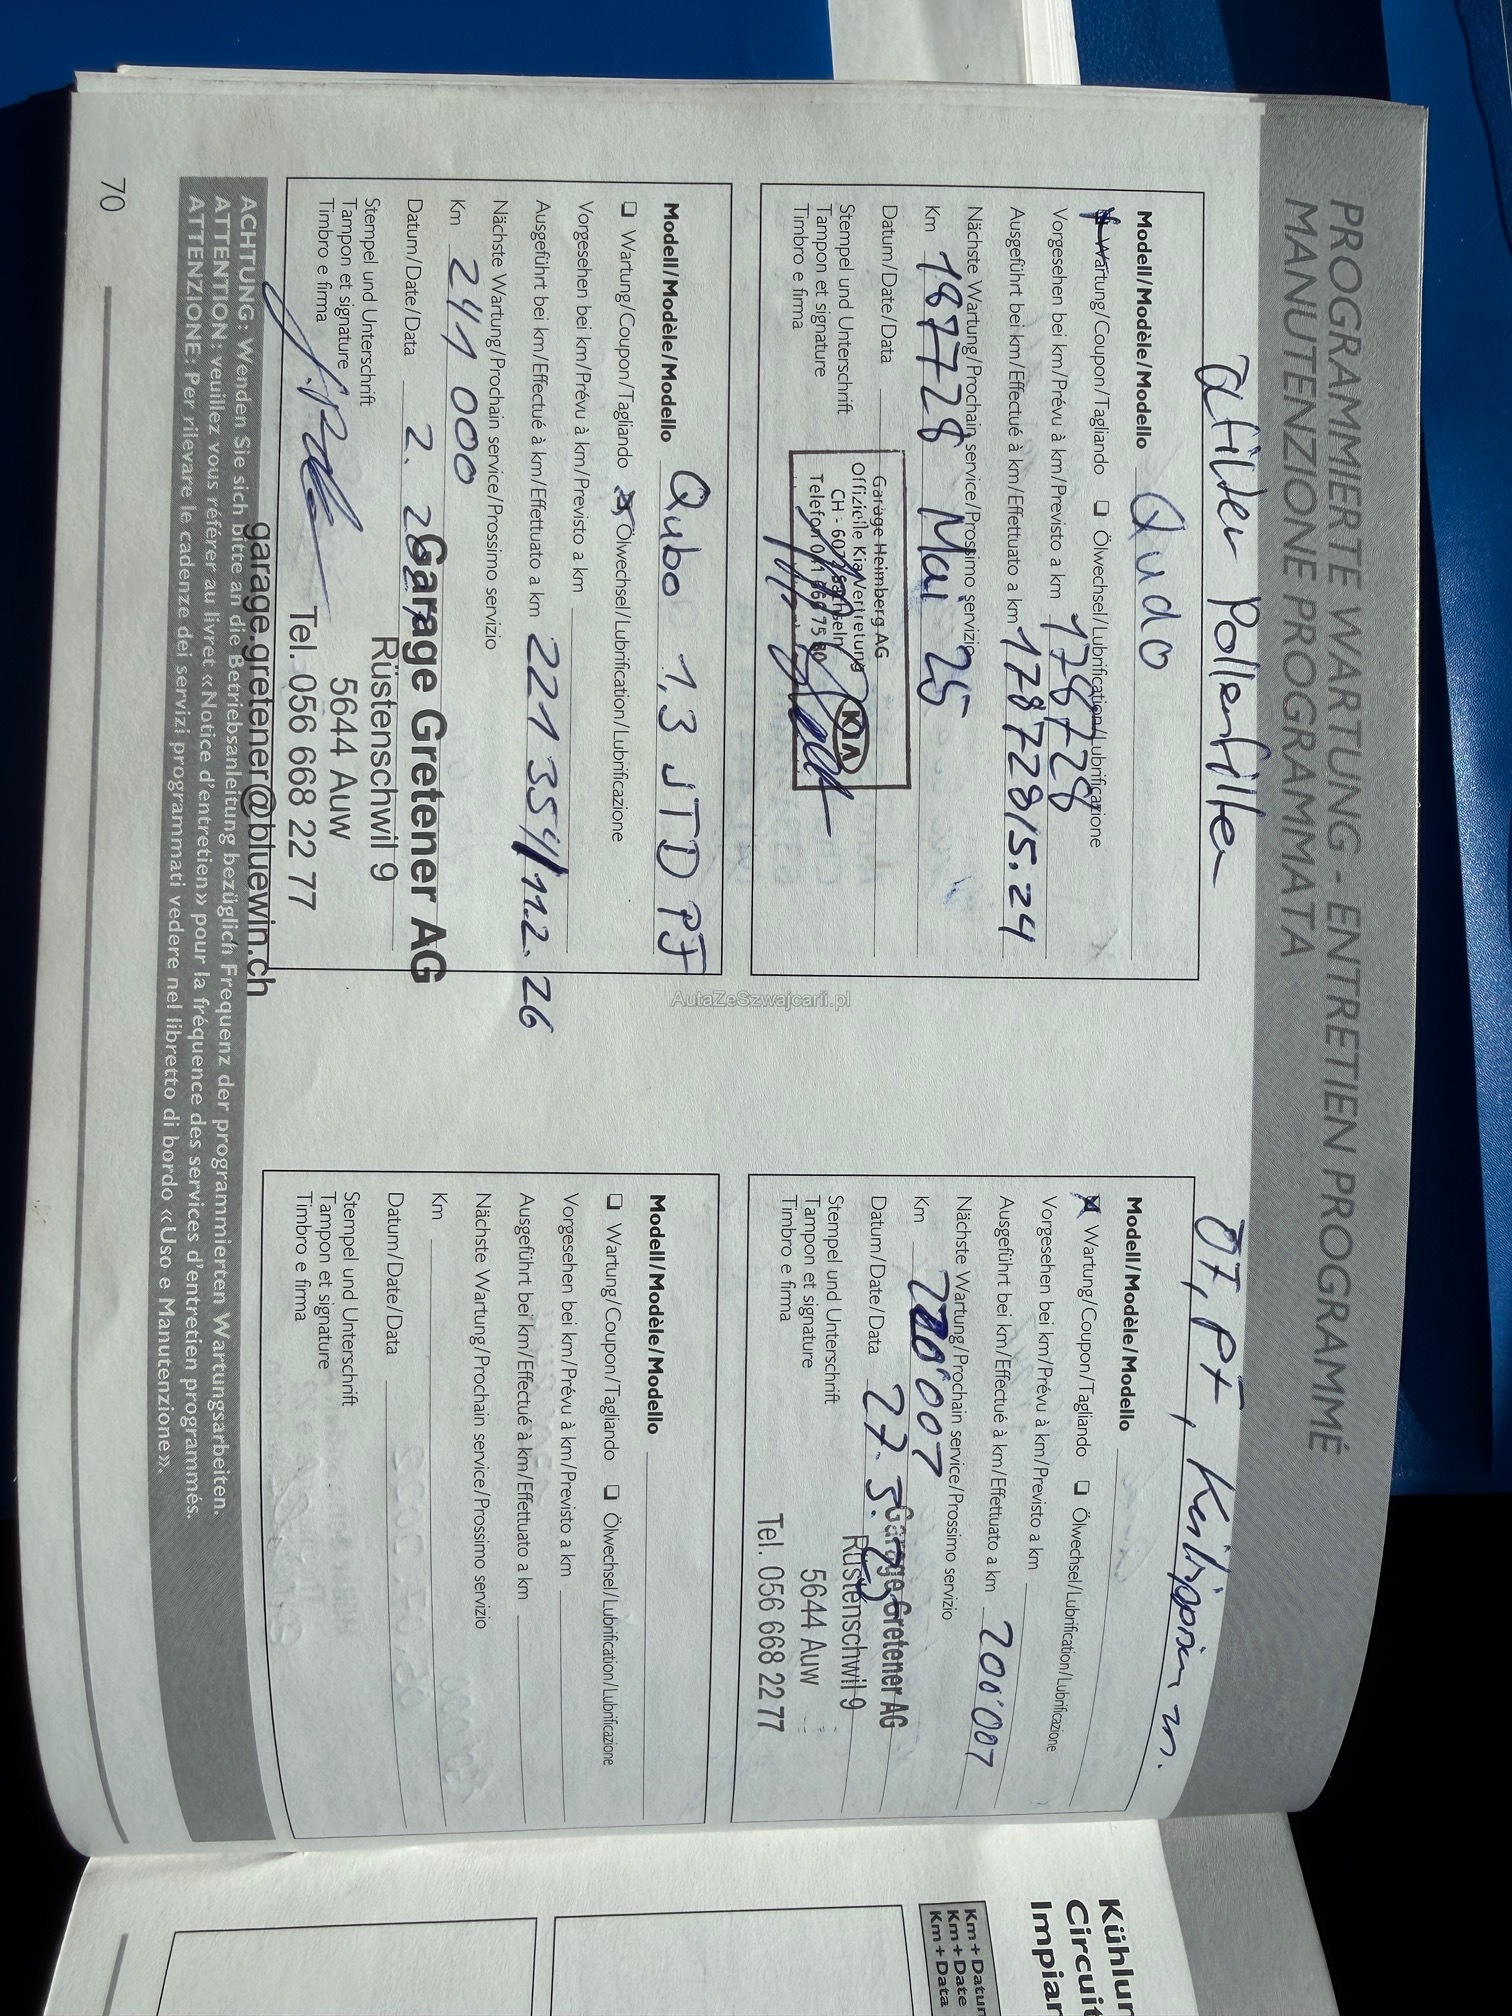 PROGRAMMIERTE WARTUNG - ENTRETIEN PROGRAMMÉ
MANUTENZIONE PROGRAMMATA
Pollenfilter
Modell/Modèle/Modello Qudo
Wartung/Coupon/Tagliando ❑ Ölwechsel/Lubrification/Lubrificazione
Vorgesehen bei km/Prévu à km/Previsto a km 178728
Ausgeführt bei km/Effectué à km/Effettuato a km 178728/5.24
Nächste Wartung/Prochain service/Prossimo servizio
Km 187728 Mai 25
Datum/Date/Data
Stempel und Unterschrift
Tampon et signature
Timbro e firma
Garage Heimberg AG
Offizielle Kia Vertretung
CH - 6072 Sachseln
KIA
Modell/Modèle/Modello Qubo 1,3 JTD PF
❑ Wartung/Coupon/Tagliando Ölwechsel/Lubrification/Lubrificazione
Vorgesehen bei km/Prévu à km/Previsto a km
Ausgeführt bei km/Effectué à km/Effettuato a km 221 354/11.2.26
Nächste Wartung/Prochain service/Prossimo servizio
Km 241 000
Datum/Date/Data 2.
Stempel und Unterschrift
Tampon et signature
Timbro e firma
Garage Gretener AG
Rüstenschwil 9
5644 Auw
Tel. 056 668 22 77
garage.gretener@bluewin.ch
Modell/Modèle/Modello
Wartung/Coupon/Tagliando ❑ Ölwechsel/Lubrification/Lubrificazione
Vorgesehen bei km/Prévu à km/Previsto a km
Ausgeführt bei km/Effectué à km/Effettuato a km 200'007
Nächste Wartung/Prochain service/Prossimo servizio
Km 220'007
Datum/Date/Data 27.
Stempel und Unterschrift
Tampon et signature
Timbro e firma
Garage Gretener AG
Rüstenschwil 9
5644 Auw
Tel. 056 668 22 77
Modell/Modèle/Modello
❑ Wartung/Coupon/Tagliando ❑ Ölwechsel/Lubrification/Lubrificazione
Vorgesehen bei km/Prévu à km/Previsto a km
Ausgeführt bei km/Effectué à km/Effettuato a km
Nächste Wartung/Prochain service/Prossimo servizio
Km
Datum/Date/Data
Stempel und Unterschrift
Tampon et signature
Timbro e firma
ACHTUNG: Wenden Sie sich bitte an die Betriebsanleitung bezüglich Frequenz der programmierten Wartungsarbeiten.
ATTENTION: veuillez vous référer au livret «Notice d'entretien» pour la fréquence des services d'entretien programmés.
ATTENZIONE: Per rilevare le cadenze dei servizi programmati vedere nel libretto di bordo «Uso e Manutenzione».
70
AutaZeSzwajcarii.pl
Km+Date
Km+Data